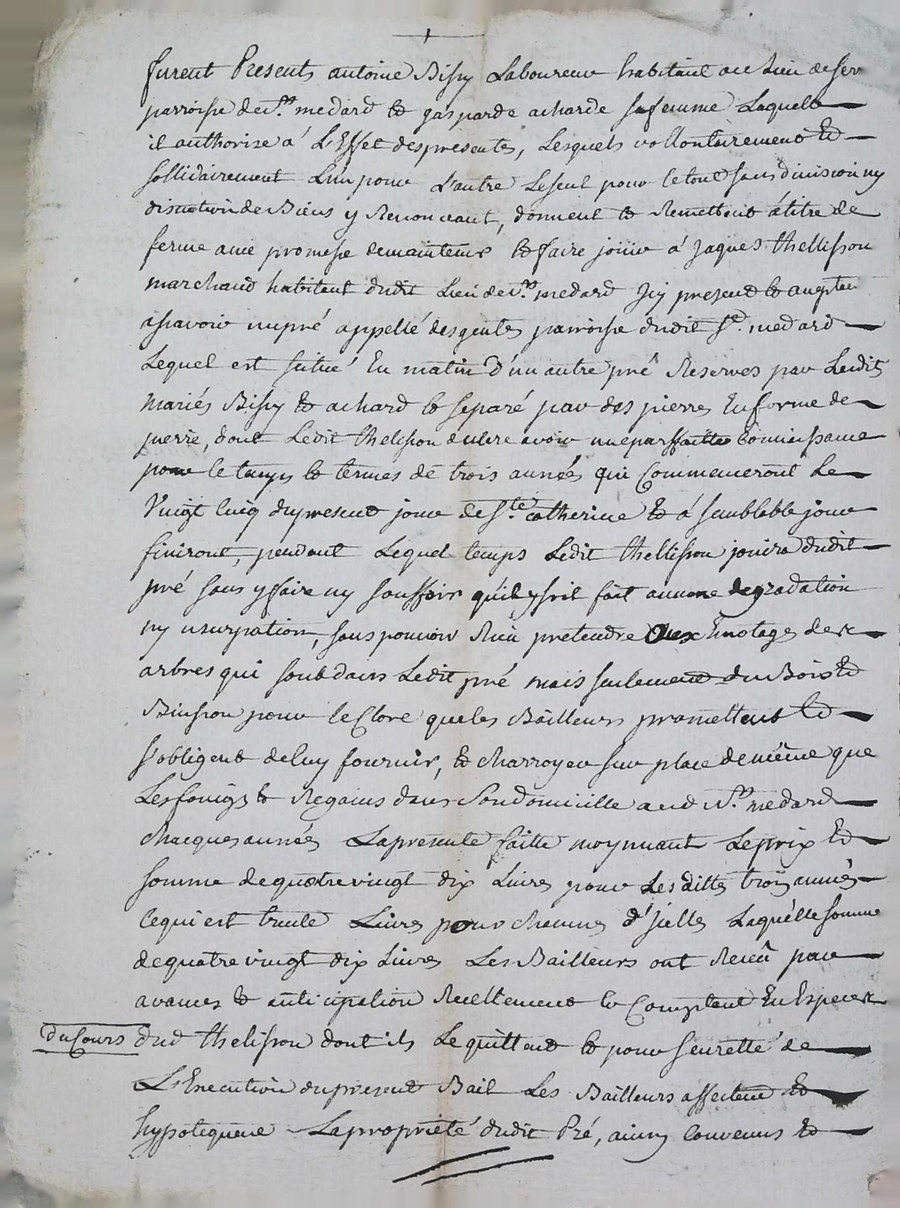 furent Presents antoine Bissy Laboureur habitant au Lieu de
parroisse de St. medard & gasparde acharde sa femme Laquelle
il authorize á L'Effet des presentes, Lesquels vollontairement Et
sollidairement L'un pour L'autre Le seul pour le tout sans division ny
discution de Biens y Renonceant, donnent & Remettent á titre de
ferme avec promesse de maintenir & faire jouir á jaques thellisson
marchand habitant dudit Lieu de St. medard Icy present & acceptant
assavoir un pré appellé des goutes parroisse dudit St. medard
Lequel est situé En matin d'un autre pré Reserves par Lesdits
mariés Bissy & achard & separé par des pierres En forme de
, dont Ledit thelisson a dit avoir une parffaitte Connoissance
pour le temps & termes de trois années qui Commenceront Le
Vingt cinq du present jour de Ste. catherine & á semblable jour
finiront, pendant Lequel temps Ledit thellisson jouira dudit
pré sans y ffaire ny souffrir qu'il y soit fait aucune degradation
ny usurpation, sans pouvoir Rien pretendre aux Emotages des
arbres qui sont dans Ledit pré mais seulement du Bois &
Buisson pour le Clore que les Bailleurs promettent Et
s'obligent de luy fournir, & charroyer sur place de même que
Les foings & Regains dans son domicille aud St. medard
chacques années La presente faitte moynnant Le prix Et
somme de quatre vingt dix Livres pour Lesdittes trois années
ce qui est trente Livres pour chacune d'jcelles Laquelle somme
de quatre vingt dix Livres Les Bailleurs ont Receu par
avances & anticipation Reellement & Comptant En Especes
du Cours dud thelisson dont ils Le quittent & pour seuretté de
L'Execution du present Bail Les Bailleurs affectent Et
hypotequent La propriété dudit Pré, ainsy Convenus Et